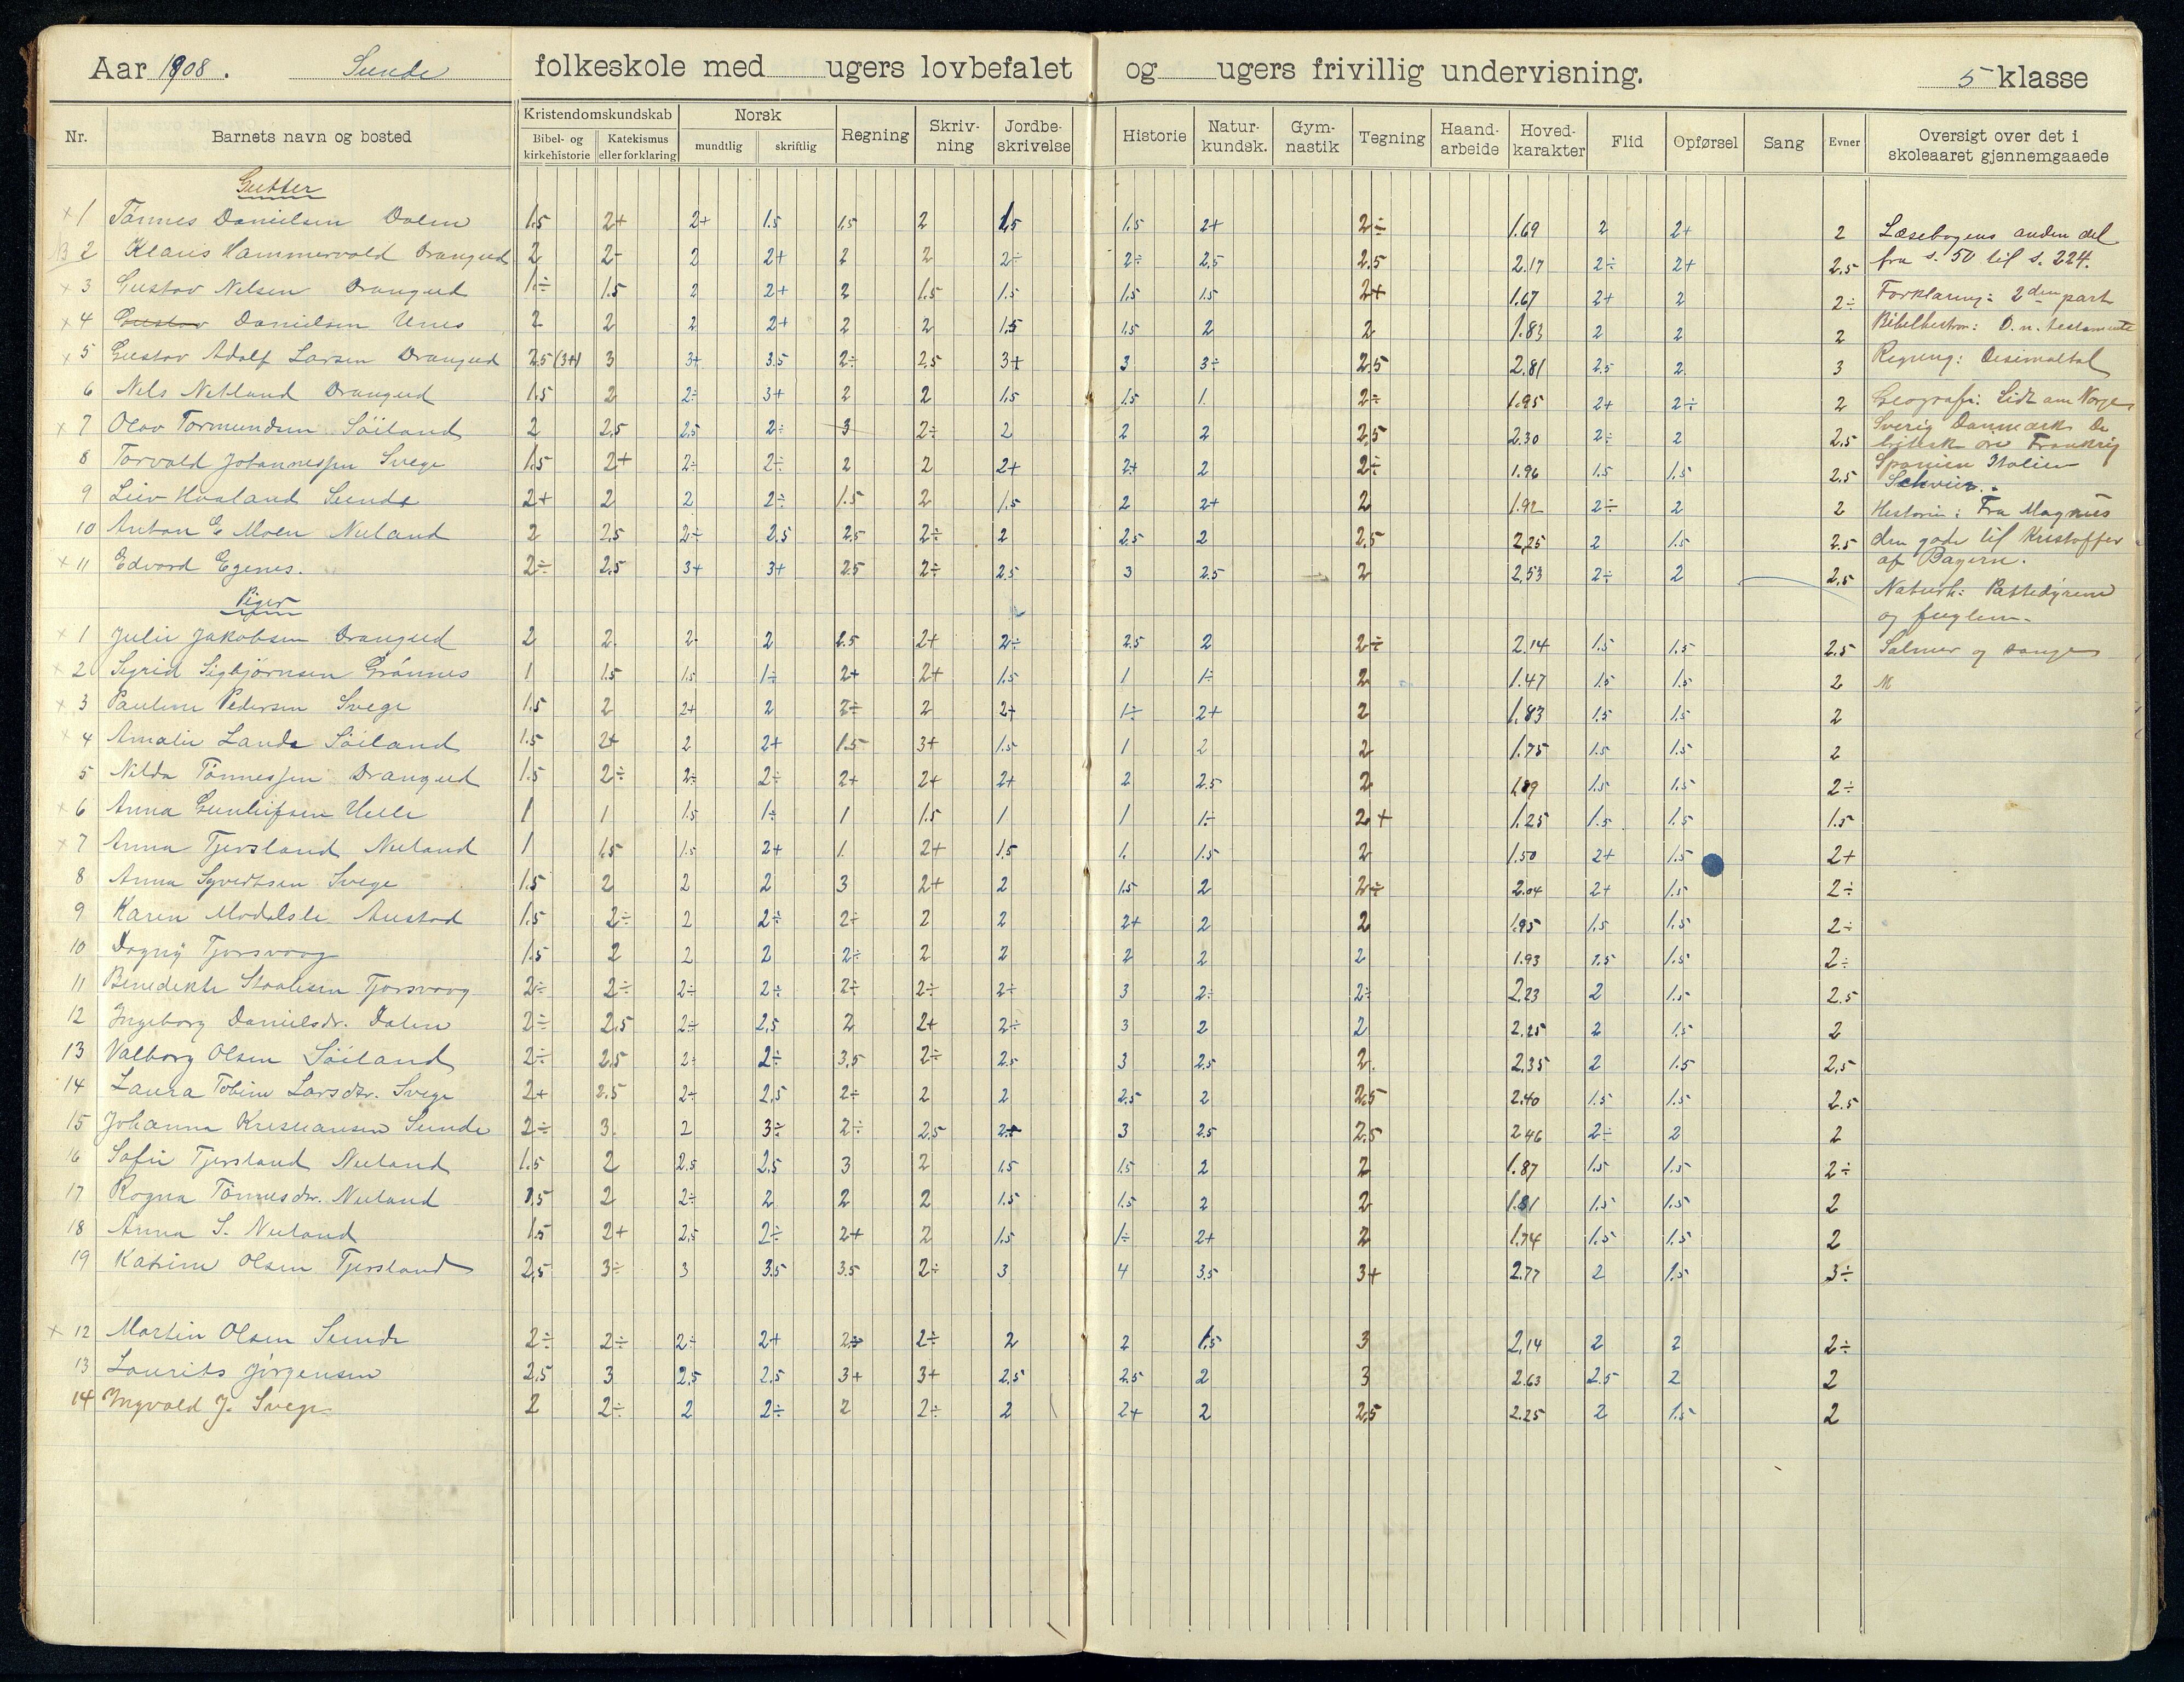 Aar 1908. Sunde folkeskole med ugers lovbefalet og ugers frivillig undervisning. 5 klasse
Nr. Barnets navn og bosted Kristendomskundskab Bibel- og kirkehistorie Katekismus eller forklaring Norsk mundtlig skriftlig Regning Skriv-ning Jordbe-skrivelse Historie Natur-kundsk. Gym-nastik Tegning Haand-arbeide Hoved-karakter Flid Opførsel Sang Evner Oversigt over det i skoleaaret gjennemgaaede
Gutter
x 1 Tønnes Danielsen Dalen 1.5 2+ 2+ 1.5 1.5 2 1.5 1.5 2+ 2÷ 1.69 2 2+ 2 Læsebogens anden del
NB 2 Klaus Hammervold Drangeid 2 2- 2 2+ 2 2 2÷ 2÷ 2.5 2.5 2.17 2÷ 2+ 2.5 fra s. 50 til s. 224.
x 3 Gustav Nelsen Drangeid 1÷ 1.5 2 2+ 2 1.5 1.5 1.5 1.5 2+ 1.67 2+ 2 2÷ Forklaring: 2den part
x 4 Gustav Danielsen Unes 2 2 2 2+ 2 2 1.5 1.5 2 2 1.83 2 2 2 Bibelhistor: D. n. testamente
x 5 Gustav Adolf Larsen Drangeid 2.5 (3+) 3 3+ 3.5 2÷ 2.5 3+ 3 3÷ 2.5 2.81 2.5 2 3 Regning: Desimaltal
6 Nels Netland Drangeid 1.5 2 2÷ 3+ 2 2 1.5 1.5 1. 2÷ 1.95 2+ 2÷ 2 Geografi: Lidt om Norge,
x 7 Olav Tormundsen Søiland 2 2.5 2.5 2÷ 3 2÷ 2 2 2 2.5 2.30 2÷ 2 2.5 Sverig Danmark De
britisk øer Frankrig
8 Torvald Johannessen Svege 1.5 2+ 2÷ 2÷ 2 2 2+ 2+ 2 2÷ 1.96 1.5 1.5 2.5 Spanien Italien
Schveiz.
9 Leiv Haaland Sunde 2+ 2 2 2÷ 1.5 2 1.5 2 2+ 2 1.92 2÷ 2 2 Historie: Fra Magnus
10 Anton E Moen Nuland 2 2.5 2÷ 2.5 2.5 2÷ 2 2.5 2 2.5 2.25 2 1.5 2.5 den gode til Kristoffer
x 11 Edvard Egenes. 2÷ 2.5 3+ 3+ 2.5 2÷ 2.5 3 2.5 2 2.53 2÷ 2 2.5 af Bayern.
Piger Naturk: Pattedyrene
og fuglene.
x 1 Julie Jakobsen Drangeid 2 2. 2- 2 2.5 2+ 2÷ 2.5 2 2÷ 2.14 1.5 1.5 2.5 Salmer og sange
x 2 Sigrid Sigbjørnsen Grønnes 1 1.5 1.5 1÷ 2+ 2+ 1.5 1 1÷ 2 1.47 1.5 1.5 2 M
x 3 Pauline Pedersen Svege 1.5 2 2+ 2 2÷ 2 2+ 1÷ 2+ 2 1.83 1.5 1.5 2
x 4 Amalie Lande Søiland 1.5 2+ 2 2+ 1.5 3+ 1.5 1 2 2 1.75 1.5 1.5 2
5 Nilda Tønnessen Drangeid 1.5 2÷ 2÷ 2÷ 2+ 2+ 2+ 2 2.5 2 1.89 1.5 1.5 2÷
x 6 Anna Gunleifsen Helle 1 1 1.5 1÷ 1 1.5 1 1 1÷ 2+ 1.25 1.5 1.5 1.5
x 7 Anna Tjersland Nuland 1 1.5 1.5 2+ 1. 2+ 1.5 1. 1.5 2 1.50 2+ 1.5 2+
8 Anna Syvertsen Svege 1.5 2 2 2 3 2+ 2 1.5 2 2÷ 2.04 2+ 1.5 2÷
9 Karen Modalsle Austad 1.5 2÷ 2 2÷ 2÷ 2 2 2+ 2 2 1.95 1.5 1.5 2÷
10 Dagny Tjorsvaag 1.5 2 2 2 2÷ 2 2 2 2 2 1.93 1.5 1.5 2÷
11 Benedikte Staalesen Tjorsvaag 2÷ 2÷ 2÷ 2÷ 2÷ 2÷ 2÷ 3 2÷ 2÷ 2.23 2 1.5 2.5
12 Ingeborg Danielsdr. Dalen 2÷ 2.5 2÷ 2.5 2 2+ 2÷ 3 2 2 2.25 2 1.5 2
13 Valborg Olsen Søiland 2÷ 2.5 2÷ 2÷ 3.5 2÷ 2.5 3 2.5 2. 2.35 2 1.5 2.5
14 Laura Tobine Larsdtr. Svege 2+ 2.5 2÷ 2.5 2÷ 2 2 2.5 2 2.5 2.40 1.5 1.5 2.5
15 Johanna Kristiansen Sunde 2÷ 3. 2 3÷ 2÷ 2.5 2+ 3 2.5 2.5 2.46 2÷ 2 2
16 Sofie Tjersland Nuland 1.5 2 2.5 2.5 3 2 1.5 1.5 2 2 1.87 1.5 1.5 2÷
17 Ragna Tønnesdr. Nuland 1.5 2 2÷ 2 2 2 1.5 1.5 2 2 1.81 1.5 1.5 2
18 Anna S. Nuland 1.5 2+ 2.5 2÷ 2+ 2 1.5 1÷ 2+ 2 1.74 1.5 1.5 2
19 Katrine Olsen Tjersland 2.5 3÷ 3 3.5 3.5 2÷ 3 4 3.5 3+ 2.77 2 1.5 3÷
x 12 Martin Olsen Sunde 2÷ 2÷ 2÷ 2+ 2÷ 2÷ 2 2 1.5 3 2.14 2 2 2÷
13 Laurits Jørgensen 2.5 3 2.5 2.5 3+ 3+ 2.5 2.5 2 3 2.63 2.5 2 2
14 Ingvald J. Svege 2 2÷ 2 2÷ 2 2÷ 2 2+ 2 2.5 2.25 2 1.5 2